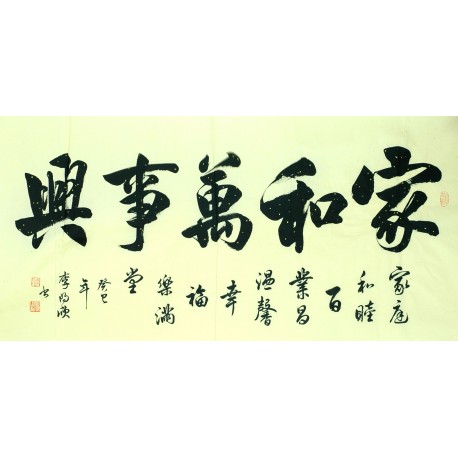 家和萬事興
家庭和睦百業昌
溫馨幸福樂滿堂
癸巳年